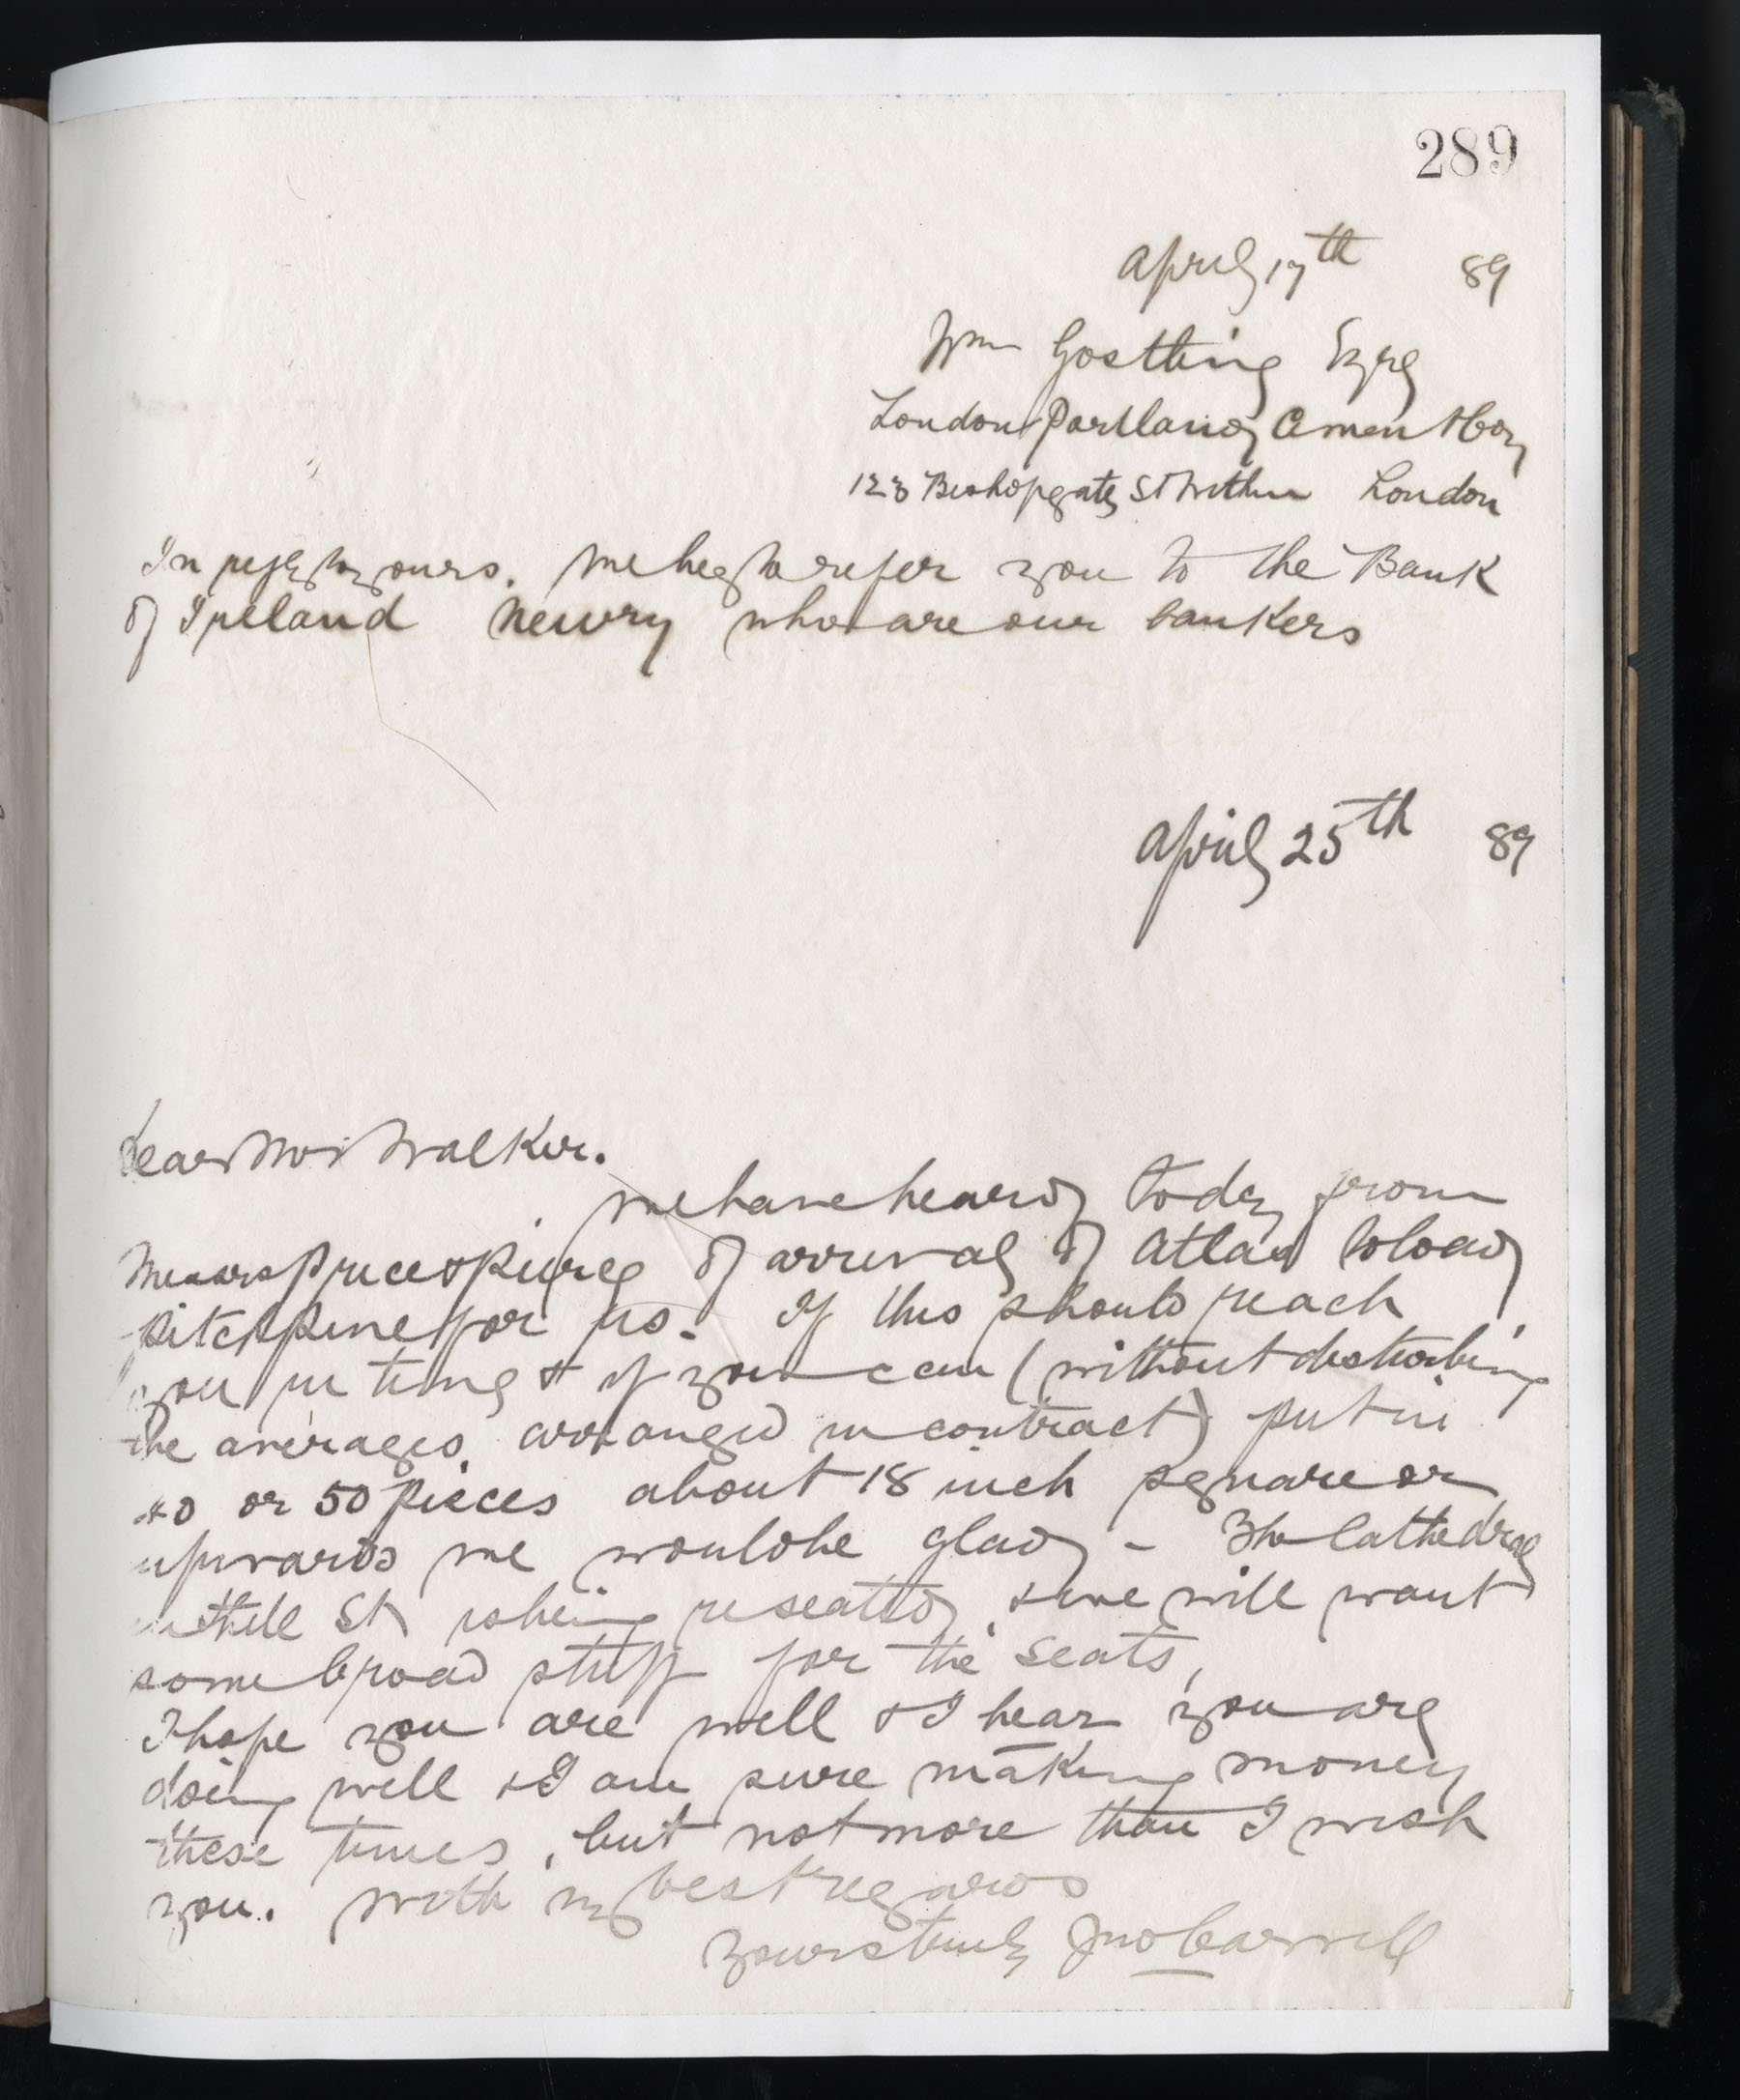 289
April 17th 89
Wm Gostling Esqre
London Portland Cement Coy
123 Bishopgate St Within London
In reply to yours. We beg to refer you to the Bank
of Ireland Newry who are our bankers
April 25th 89
Dear Mr Walker.
We have heard today from
Messrs Price & Pierce of arrival of Atlas to load
pitch pine for us. If this should reach
you in time & if you can (without disturbing
the averages arranged in contract) put in
40 or 50 pieces about 18 inch square or
upwards we would be glad - The Cathedral
in Hill St is being reseated, & we will want
some broad stuff for the seats,
I hope you are well & I hear you are
doing well & I am sure making money
these times, but not more than I wish
you. With my best regards
Yours truly Jno Carvill